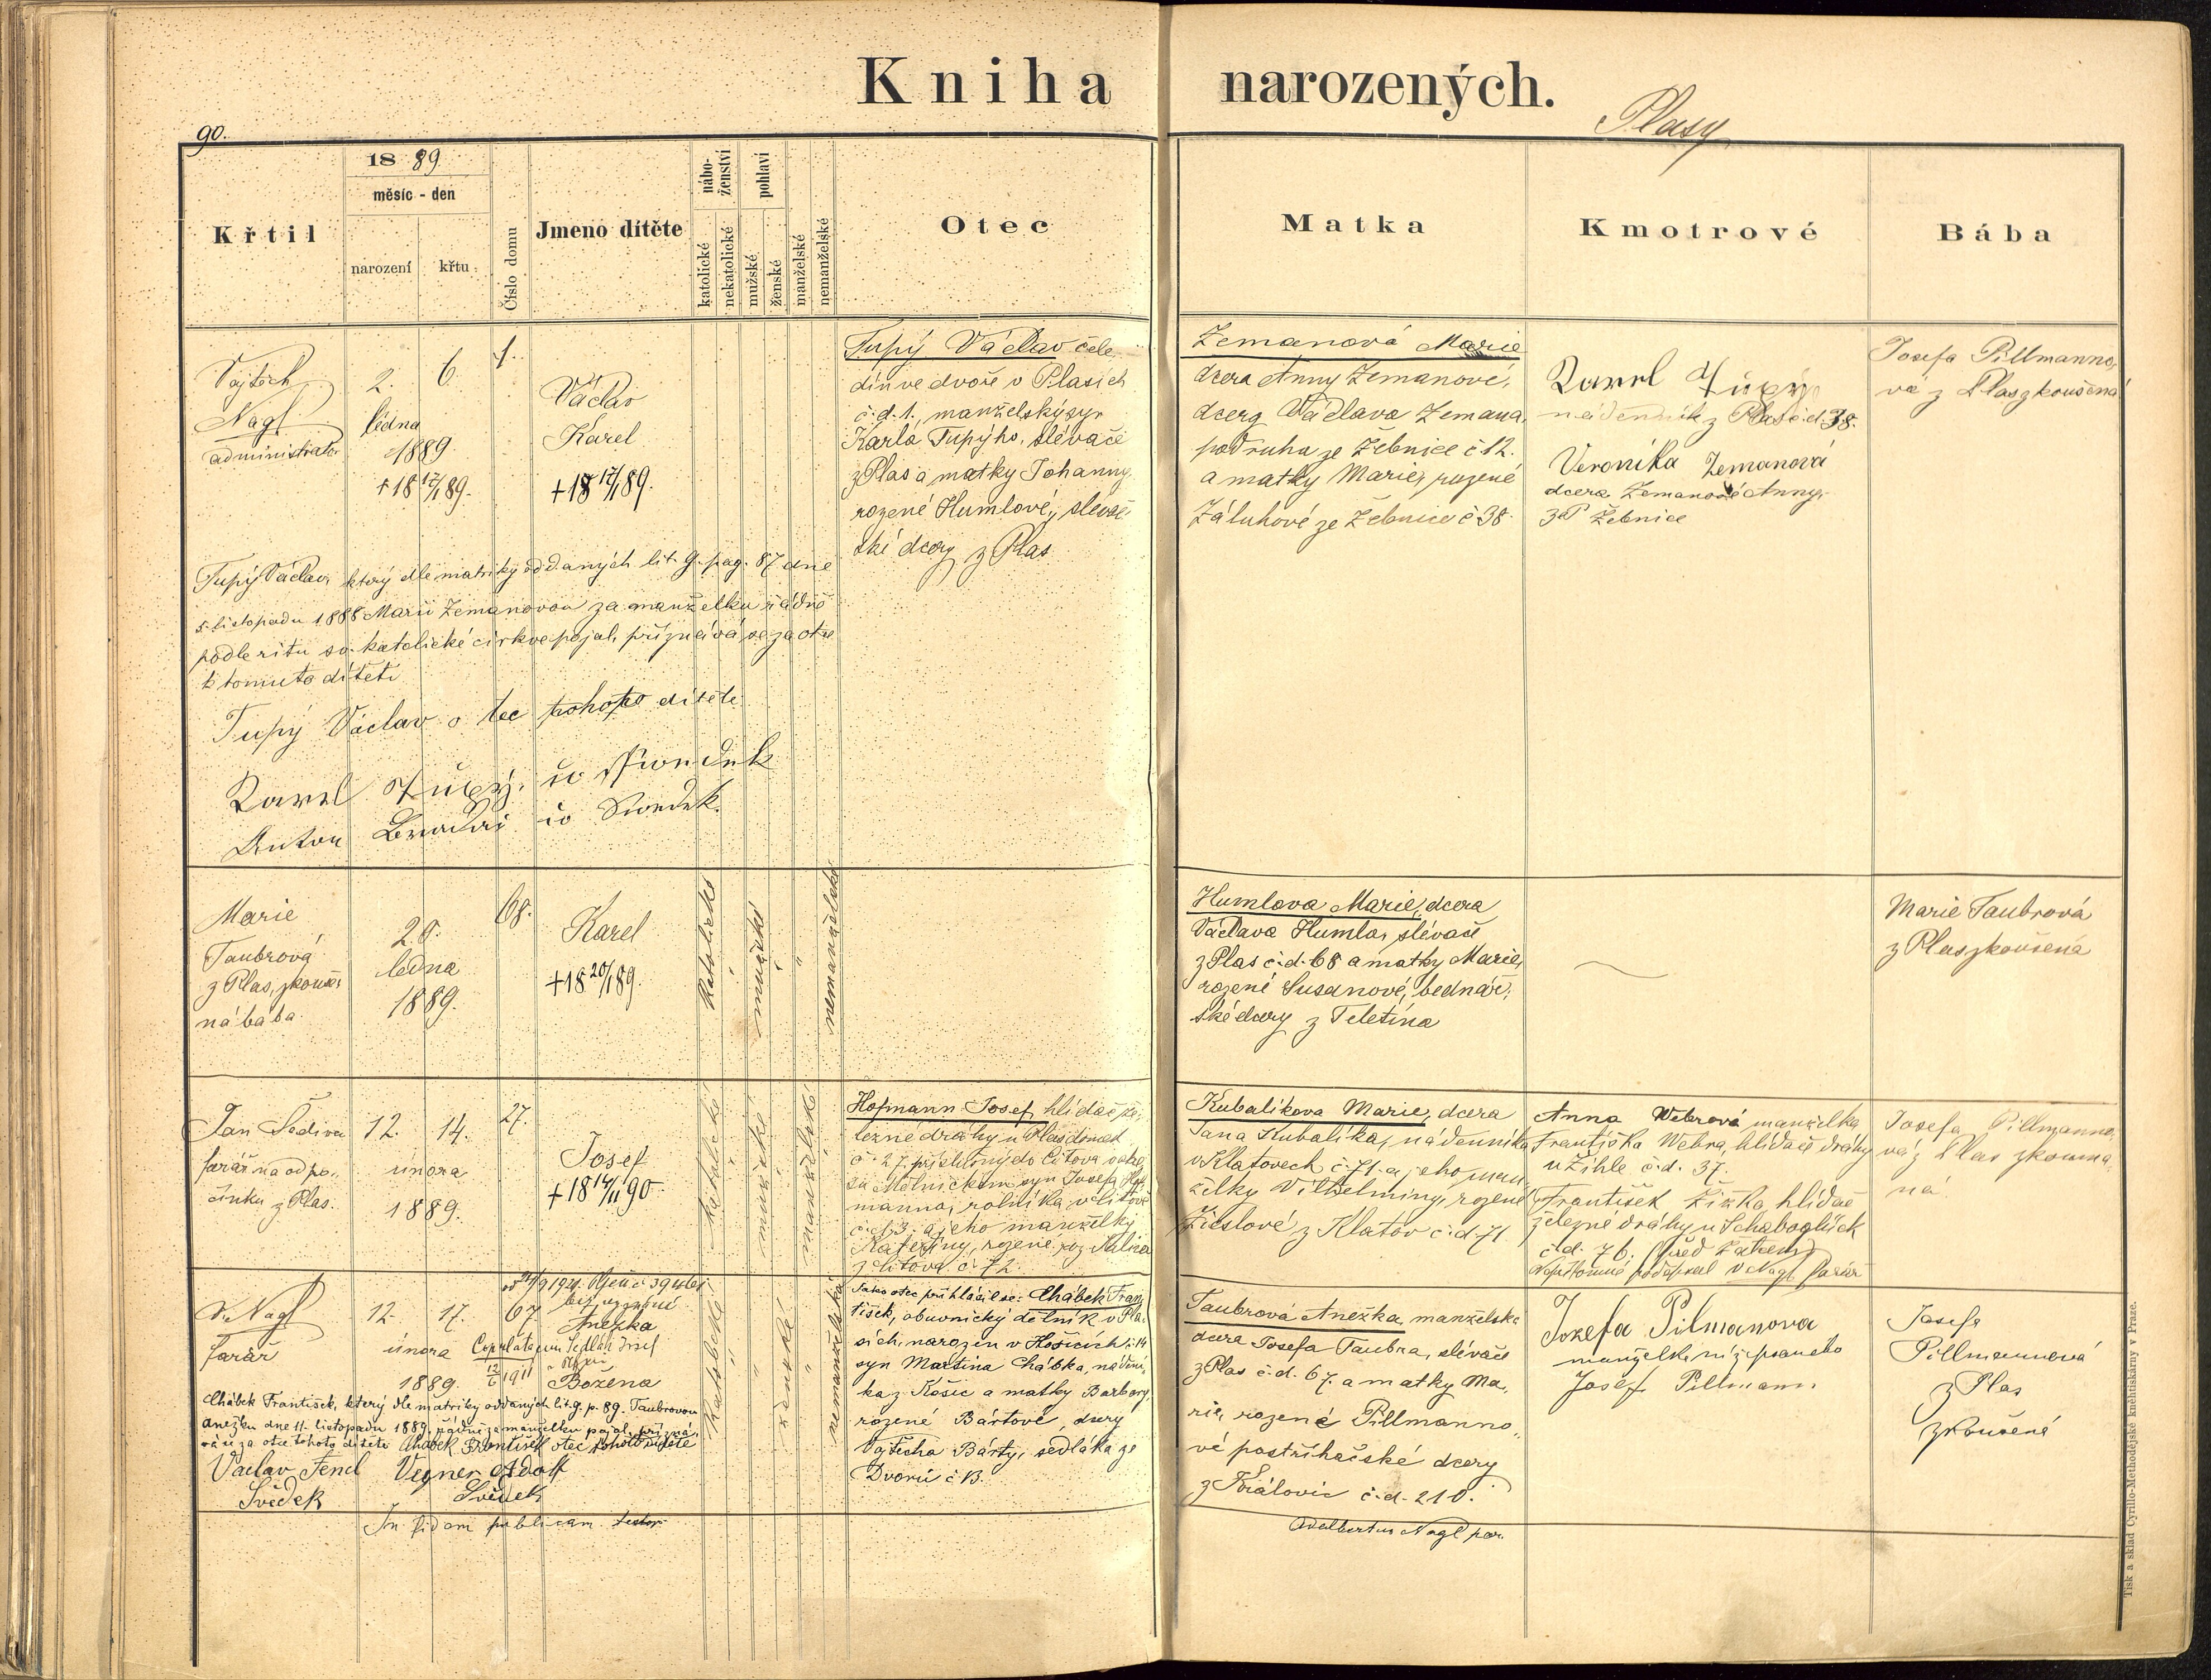 Kniha narozených.
Plasy
90.
Křtil
18 89
měsíc - den
narození
křtu
Číslo domu
Jmeno dítěte
nábo-
ženství
katolické
nekatolické
pohlaví
mužské
ženské
manželské
nemanželské
Otec
Matka
Kmotrové
Bába
Vojtěch
Nagl
administrator
2. 6.
ledna
1889
+18 17/1 89.
1.
Václav
Karel
+18 17/1 89.
Tupý Václav čele
dín ve dvoře v Plasích
č.d. 1. manželský syn
Karla Tupýho, slévače
z Plas a matky Johanny
rozené Humlové, slévač
ské dcery z Plas
Zemanová Marie
dcera Anny Zemanové,
dcery Václava Zemana,
podruha ze Žebnice č 12.
a matky Marie, rozené
Záluhové ze Žebnice č 38.
Karel Tupý
nádenník z Plas č.d. 38.
Veronika Zemanová
dcera Zemanové Anny
Žebnice
Josefa Pillmanno,
vá z Plas zkoušená
Tupý Václav, který dle matriky oddaných lit. g. pag. 87 dne
5. listopadu 1888 Marii Zemanovou za manželku řádně
podle ritu sv. katolické církve pojal, přiznává se za otce
k tomuto dítěti
Tupý Václav otec tohoto dítěte
Karel Tupý, co Swedek
Anton co Swedek.
Marie
Taubrová
z Plas, zkouše,
ná bába.
20.
ledna
1889.
68.
Karel
+18 20/1 89.
katolické
mužské
nemanželské
Humlova Marie, dcera
Václava Humla, slévače
z Plas č.d. 68 a matky Marie,
rozené Susanové, bednář,
ské dcery z Teletína
Marie Taubrová
z Plas zkoušená
Jan Šediva
farář na odpo,
činku z Plas.
12. 14.
února
1889.
27.
Josef
+18 14/II 90.
katolické
mužské
manželské
Hofmann Josef, hlídač že,
lezné dráhy u Plas domek
č. 27. příslušný do Lítova okre
su syn Josefa Hof,
manna, rolníka v Lítově
č.d. 3. a jeho manželky
Kateřiny, rozené
z Lítova č. 72.
Kubalíkova Marie, dcera
Jana Kubalíka, nádenníka
v Klatovech č. 71. a jeho man,
želky Vilhelminy, rozené
z Klatov č.d. 71.
Anna Webrová manželka
Františka Webra, hlídače dráhy
u Žihle č.d. 37.
František Žižka, hlídač
železné dráhy u Schaboglück
č.d. 76. (před Žatcem)
V. Nagl farář
Josefa Pillmanno,
vá z Plas zkouma,
ná.
V. Nagl
farář
12. 17.
února
1889.
67
bez vyznání
Anežka
Copulata cum Sedlák Josef
1911
Božena
katolické
ženské
nemanželské
Jako otec přihlásil se: Chábek Fran
tišek, obuvnický dělník v Pla,
sích, narozen v Košicích č. 14
syn Martina Chábka, nádení,
ka z Košic a matky Barbory
rozené Bártové, dcery
Vojtěcha Bárty, sedláka ze
Dvorů č 13.
Taubrová Anežka, manželska
dcera Josefa Taubra, slévače
z Plas č.d. 67. a matky Ma,
rie, rozené Pillmanno,
vé postřihačské dcery
z Kralovic č.d. 210.
Adalbertus Nagl par.
Jozefa Pilmanova
manželka níže psaného
Josef Pillmann
Josefa
Pillmannová
z Plas
zkoušená
Chábek František, který dle matriky oddaných lit. g. p. 89. Taubrovou
Anežku dne 11. listopadu 1889. řádně za manželku pojal, přizná,
vá se za otce tohoto dítěte Chábek František otec tohoto dítěte
Vaclav Fencl Vegner Adolf
Svědek Svědek
In fidem publicam testor
Tisk a sklad Cyrillo-Methodějské knihtiskárny v Praze.